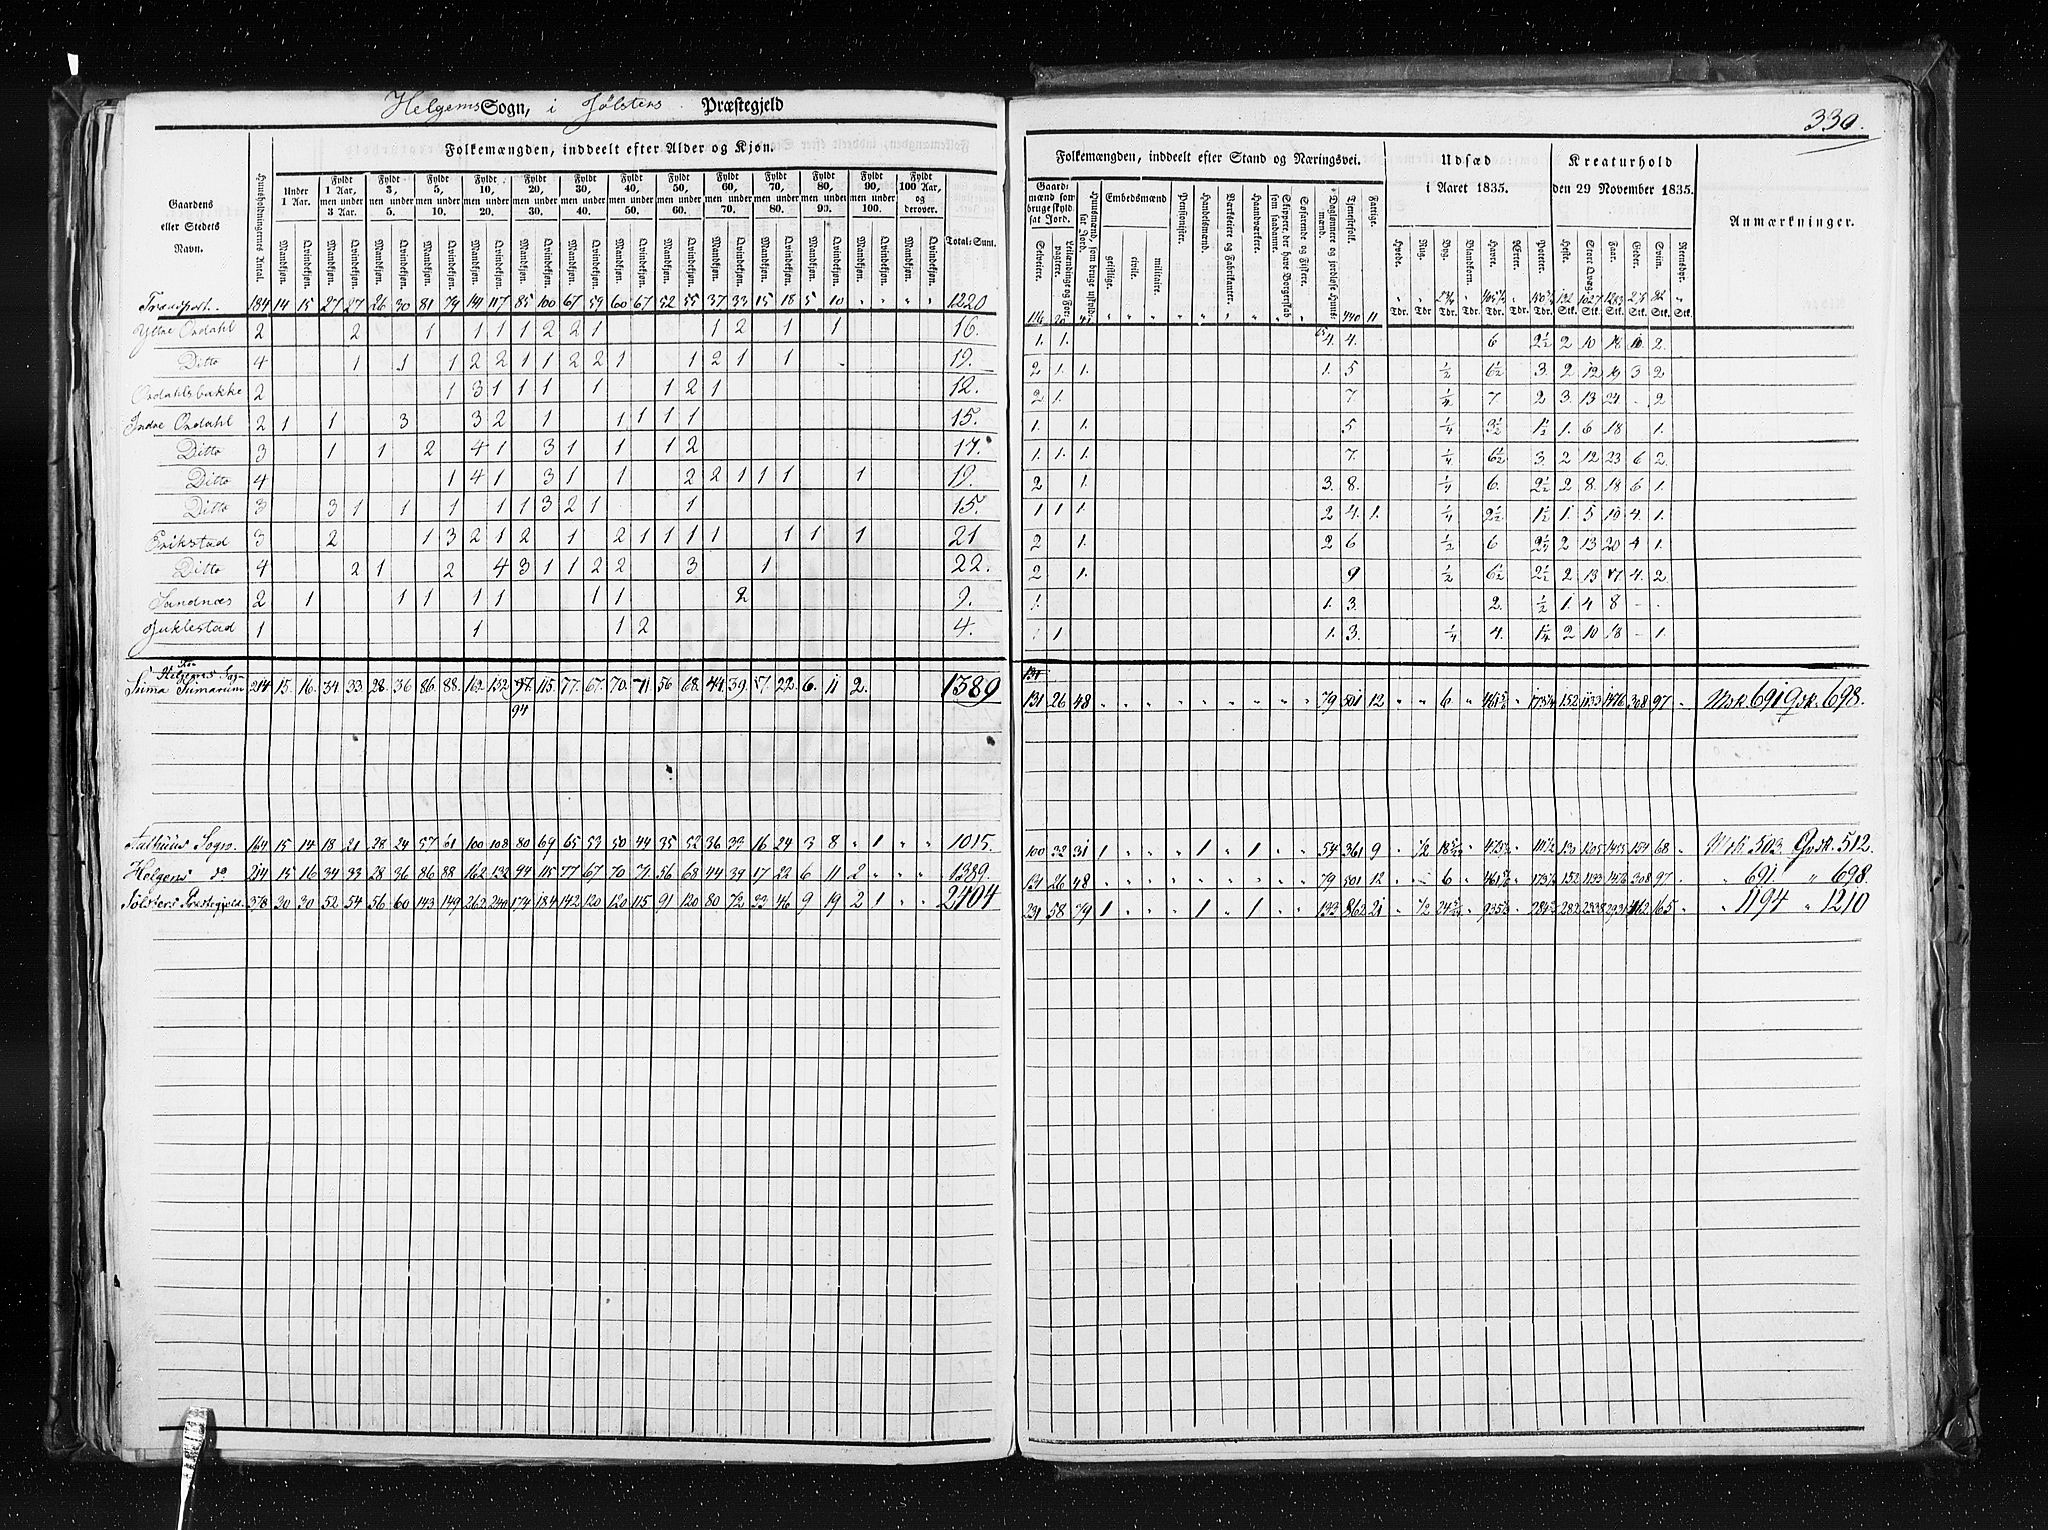 Helgems Sogn, i Jølsters Præstegjeld
330.
Folkemængden, inddeelt efter Alder og Kjøn.
Gaardens eller Stedets Navn.
Huusholdningernes Antal.
Under 1 Aar.
Fyldt 1 Aar, men under 3 Aar.
Fyldt 3, men under 5.
Fyldt 5, men under 10.
Fyldt 10, men under 20.
Fyldt 20, men under 30.
Fyldt 30, men under 40.
Fyldt 40, men under 50.
Fyldt 50, men under 60.
Fyldt 60, men under 70.
Fyldt 70, men under 80.
Fyldt 80, men under 90.
Fyldt 90, men under 100.
Fyldt 100 Aar, og derover.
Mandkjøn. Qvindekjøn.
Total-Sum.
Transport. 184 14 15 27 27 26 30 81 79 141 117 85 100 67 59 60 67 52 55 37 33 15 18 5 10 " " " " 1220
Ytre Ordahl 2 2 1 1 1 1 2 2 1 1 2 1 1 16.
Ditto 4 1 1 1 2 2 1 1 2 2 1 1 2 1 1 19.
Ordahlsbakke 2 1 3 1 1 1 1 1 2 1 12.
Indre Ordahl 2 1 1 3 3 2 1 1 1 1 1 15.
Ditto 3 1 1 2 4 1 3 1 1 1 2 17.
Ditto 4 1 4 1 3 1 1 2 2 1 1 1 1 19.
Ditto 3 3 1 1 1 1 1 3 2 1 1 15.
Erikstad 3 2 1 3 2 1 2 1 2 1 1 1 1 1 1 1 21
Ditto 4 2 1 2 4 3 1 1 2 2 3 1 22.
Sandnæs 2 1 1 1 1 1 1 1 2 9.
Juklestad 1 1 1 2 4.
for Helgems Sogn
Suma Sumarum 214 15. 16. 34 33. 28. 36 86. 88. 162 132 97. 115. 77. 67. 70. 71 56 68. 44 39. 17. 22. 6. 11 2. 1389
94
Aalhuus Sogn. 164 15 14 18 21 28 24 57 61 100 108 80 69 65 53 50 44 35 52 36 33 16 24 3 8 " 1 " " 1015.
Helgens do 214 15 16 34 33 28 36 86 88 162 132 94 115 77 67 70 71 56 68 44 39 17 22 6 11 2 " " " 1389.
Jølsters Præstegjeld. 378 30 30 52 54 56 60 143 149 262 240 174 184 142 120 120 115 91 120 80 72 33 46 9 19 2 1 " " 2404
Folkemængden, inddeelt efter Stand og Næringsvei.
Gaardmænd som bruge skyldsat Jord.
Selveiere.
Leilændinge og Forpagtere.
Huusmænd, som bruge uskyldsat Jord.
Embedsmænd
geistlige.
civile.
militaire.
Pensionister.
Handelsmænd.
Værkseiere og Fabrikanter.
Haandværkere.
Skippere, der have Borgerskab som saadanne.
Søfarende og Fiskere.
Daglønnere og jordløse Huusmænd.
Tjenestefolk.
Fattige.
Udsæd i Aaret 1835.
Hvede. Rug. Byg. Blandkorn. Havre. Erter. Poteter.
Kreaturhold den 29 November 1835.
Heste. Stort Qvæg. Faar. Geder. Sviin. Reensdyr.
Tdr. Stk.
Anmærkninger.
1. 1. 4. 4. 6 2½ 2 10 18 10. 2.
2 1. 1. 1. 5 ½ 6½ 3. 2 12 19 3 2
2 1. 7. ¼ 7 2 3. 13 24 - 2
1. 1. 5 ¼ 3½ 1½ 1. 6 18 1.
1. 1. 1. 7. ¼ 6½ 3. 2 12 23 6 2.
2 1. 3. 8. ¼ 6. 2½ 2 8. 18 6 1.
1 1 1. 2 4. 1. ¼ 2½ 1½ 1. 5 19 4. 1.
2 1. 2 6 ½ 6 2½ 2 13 20 4 1.
2 1. 9 ½ 6½ 2½ 2 13 17 4. 2
1. 1. 3. 2. ½ 1. 4 8 - .
1 1 1. 3. ¼ 4. 1¼ 2 10 18 - 1.
131
131 26 48 79 501 12 6 152 1133 1476 308 97 Msk. 691 Qsk. 698.
100 32 31 1 " " " 1 " 1 " " 54 361 9 130 1205 1455 154 68 Msk. 503 Qvsk. 512.
131 26 48 79 501 12 6 152 1133 1476 308 97 " 691 " 698.
231 58 79 1 " " " 1 " 1 " " 133 862 21 282 2338 2931 462 165 " 1194 " 1210